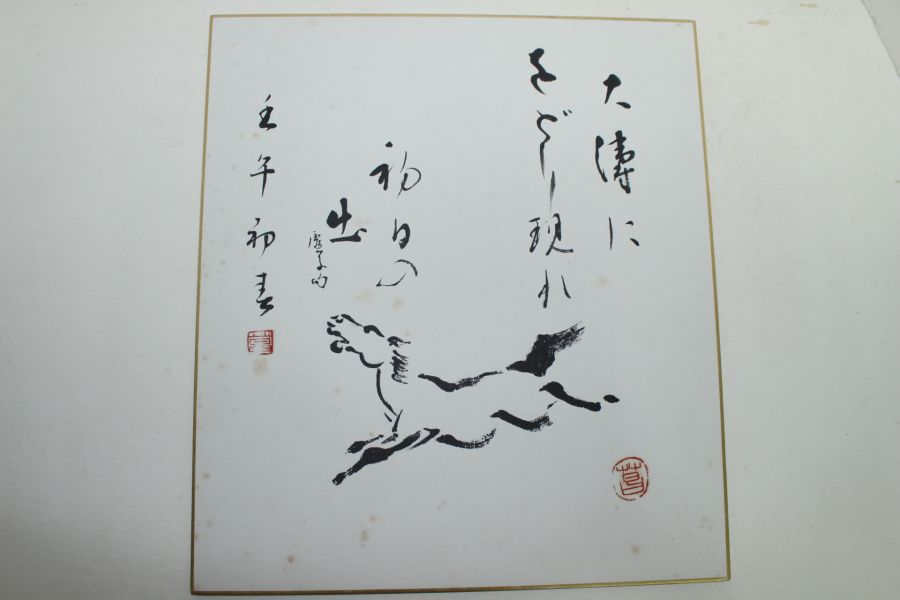 大濤に
をどり現れ
初日の
出
虚子句
壬午初春